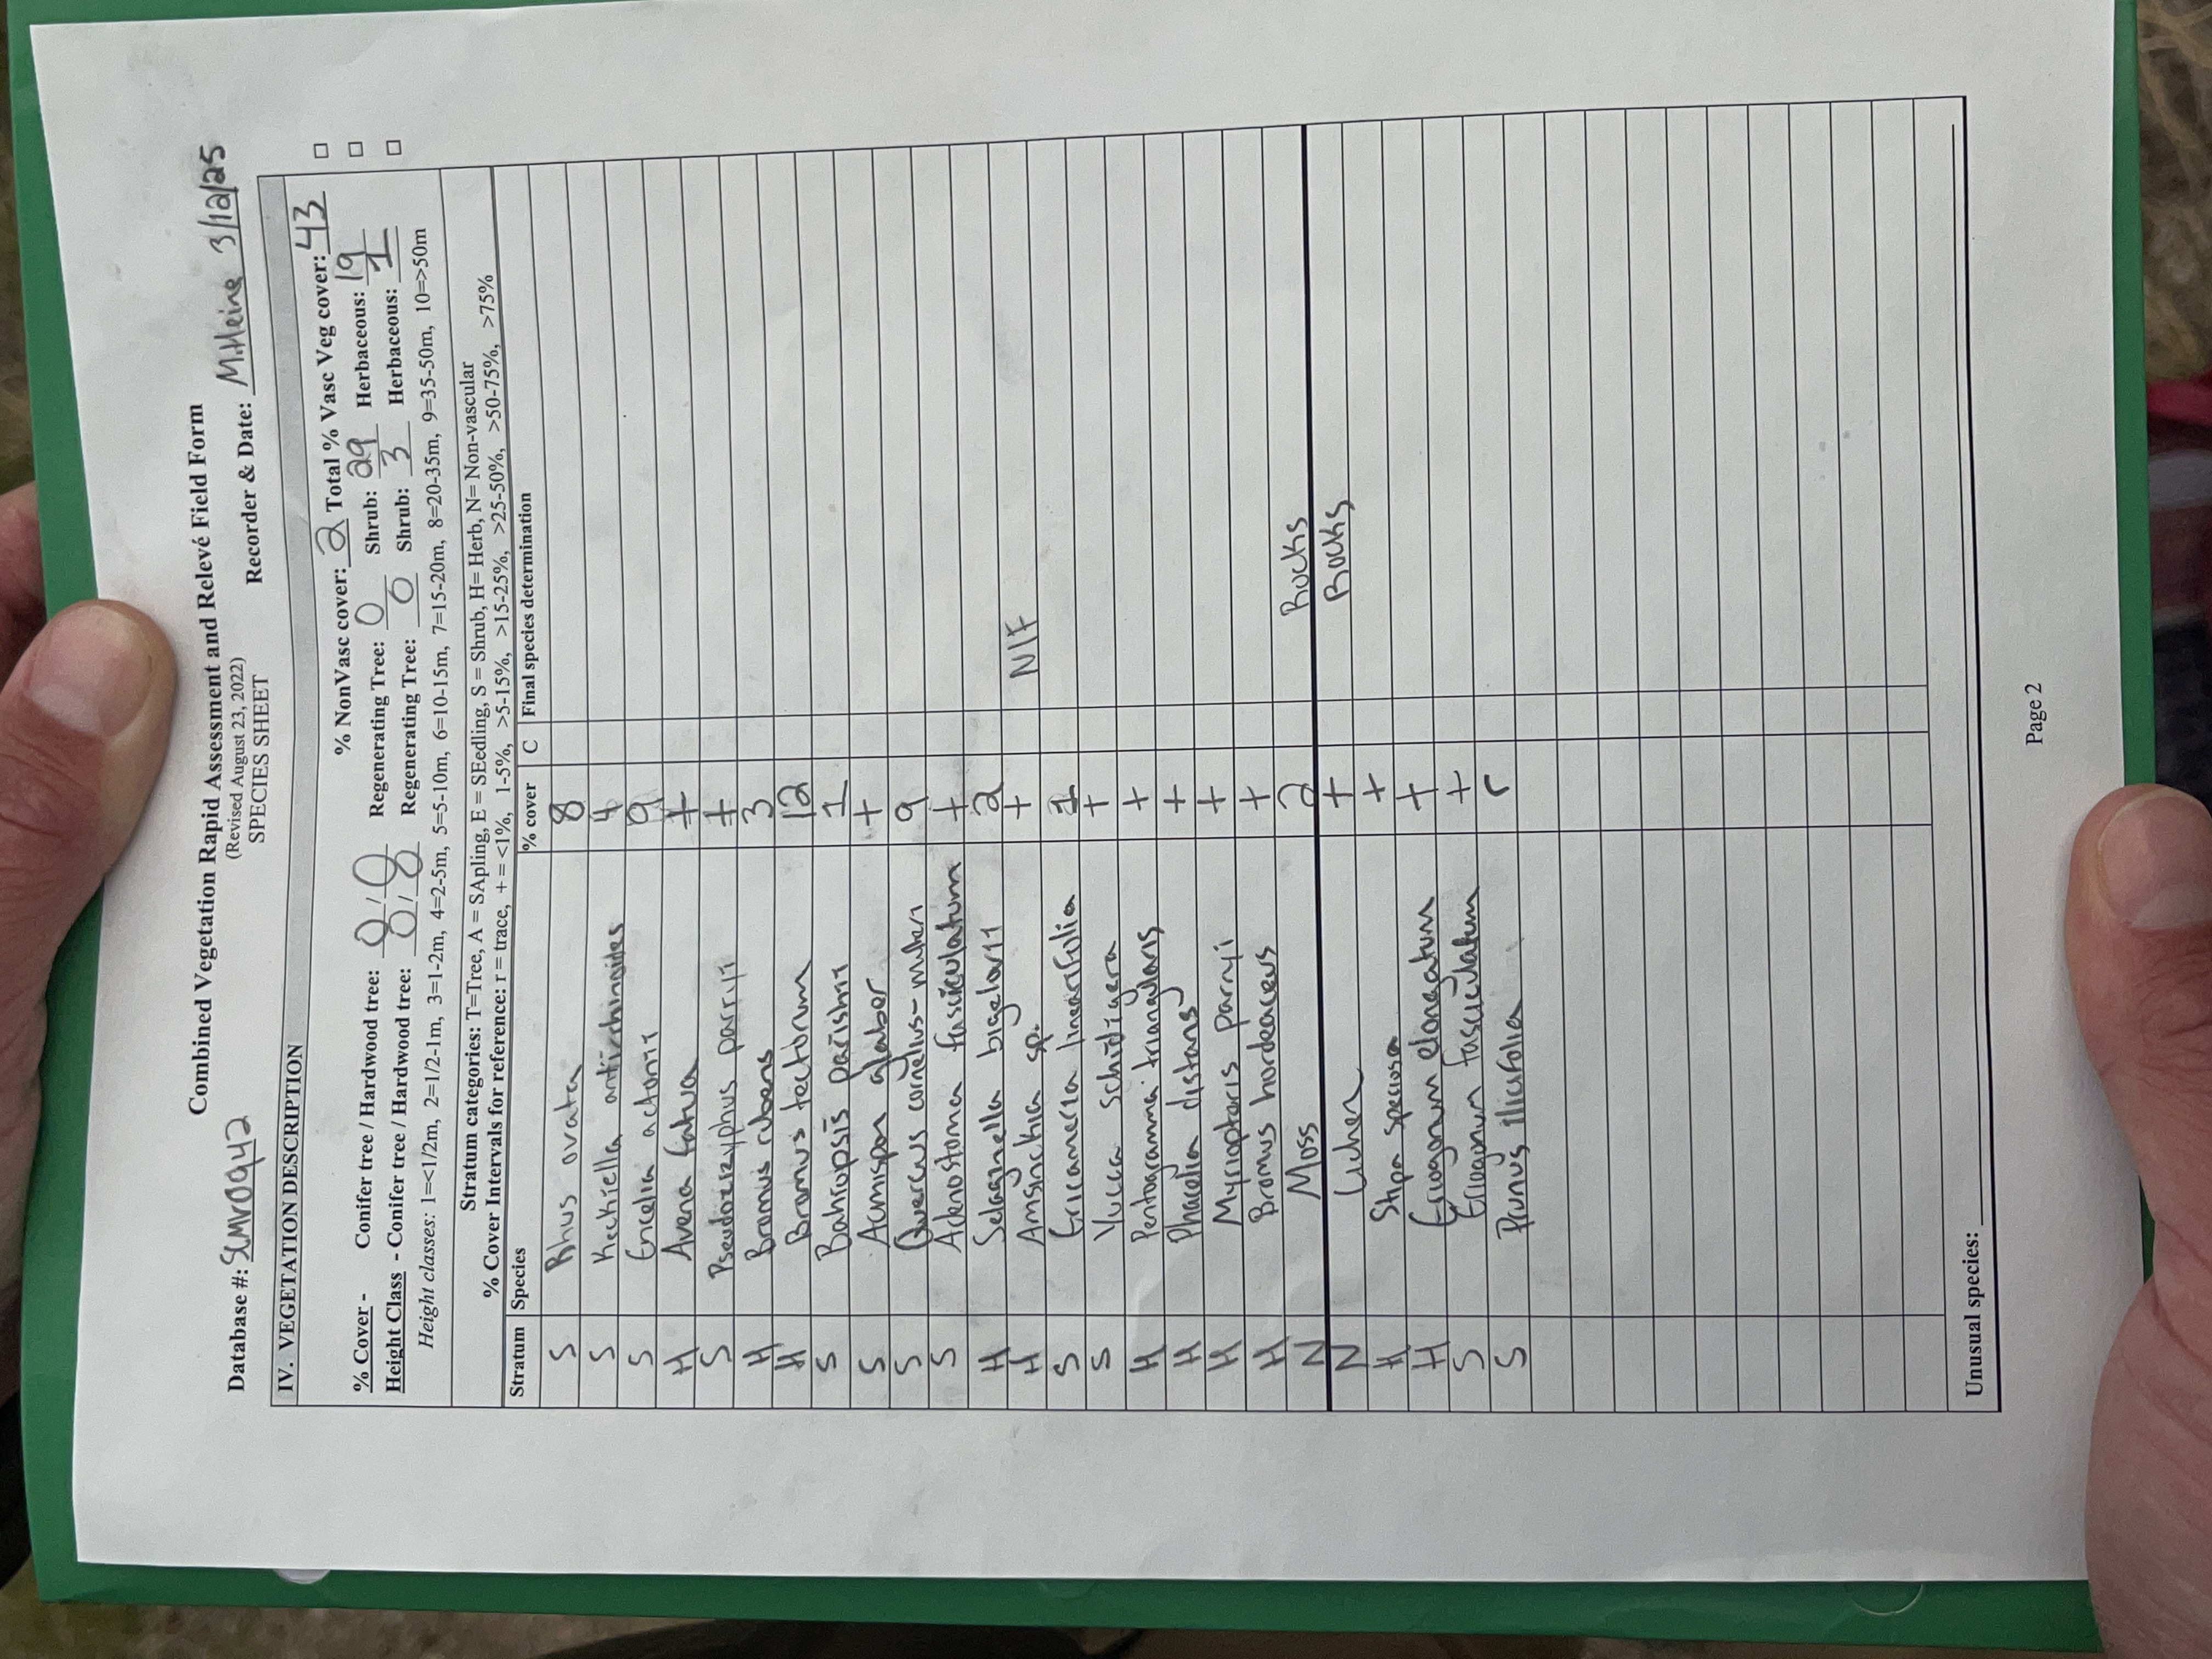 Combined Vegetation Rapid Assessment and Relevé Field Form
(Revised August 23, 2022)
SPECIES SHEET
Database #: SCMV0942 Recorder & Date: M.Heine 3/12/25
IV. VEGETATION DESCRIPTION
% NonVasc cover: 2 Total % Vasc Veg cover: 43
% Cover - Conifer tree / Hardwood tree: 0 / 0 Regenerating Tree: 0 Shrub: 29 Herbaceous: 19
Height Class - Conifer tree / Hardwood tree: 0 / 0 Regenerating Tree: 0 Shrub: 3 Herbaceous: 1
Height classes: 1=<1/2m, 2=1/2-1m, 3=1-2m, 4=2-5m, 5=5-10m, 6=10-15m, 7=15-20m, 8=20-35m, 9=35-50m, 10=>50m
Stratum categories: T=Tree, A = SApling, E = SEedling, S = Shrub, H= Herb, N= Non-vascular
% Cover Intervals for reference: r = trace, + = <1%, 1-5%, >5-15%, >15-25%, >25-50%, >50-75%, >75%
Stratum Species % cover C Final species determination
S Rhus ovata 8
S Keckiella antirrhinoides 4
S Encelia actonii 9
H Avena fatua +
S Pseudozizyphus parryii +
H Bromus rubens 3
H Bromus tectorum 12
S Bahiopsis parishii 1
S Acmispon glaber +
S Quercus cornelius-mulleri 9
S Adenostoma fasciculatum +
H Selaginella bigelovii 2
H Amsinckia sp. + NIF
S Ericameria linearifolia 1
S Yucca schidigera +
H Pentagramma triangularis +
H Phacelia distans +
H Myriopteris parryi +
H Bromus hordeaceus +
N Moss 2 Rocks
N Lichen + Rocks
H Stipa speciosa +
H Eriogonum elongatum +
S Eriogonum fasciculatum +
S Prunus ilicifolia r
Unusual species:
Page 2